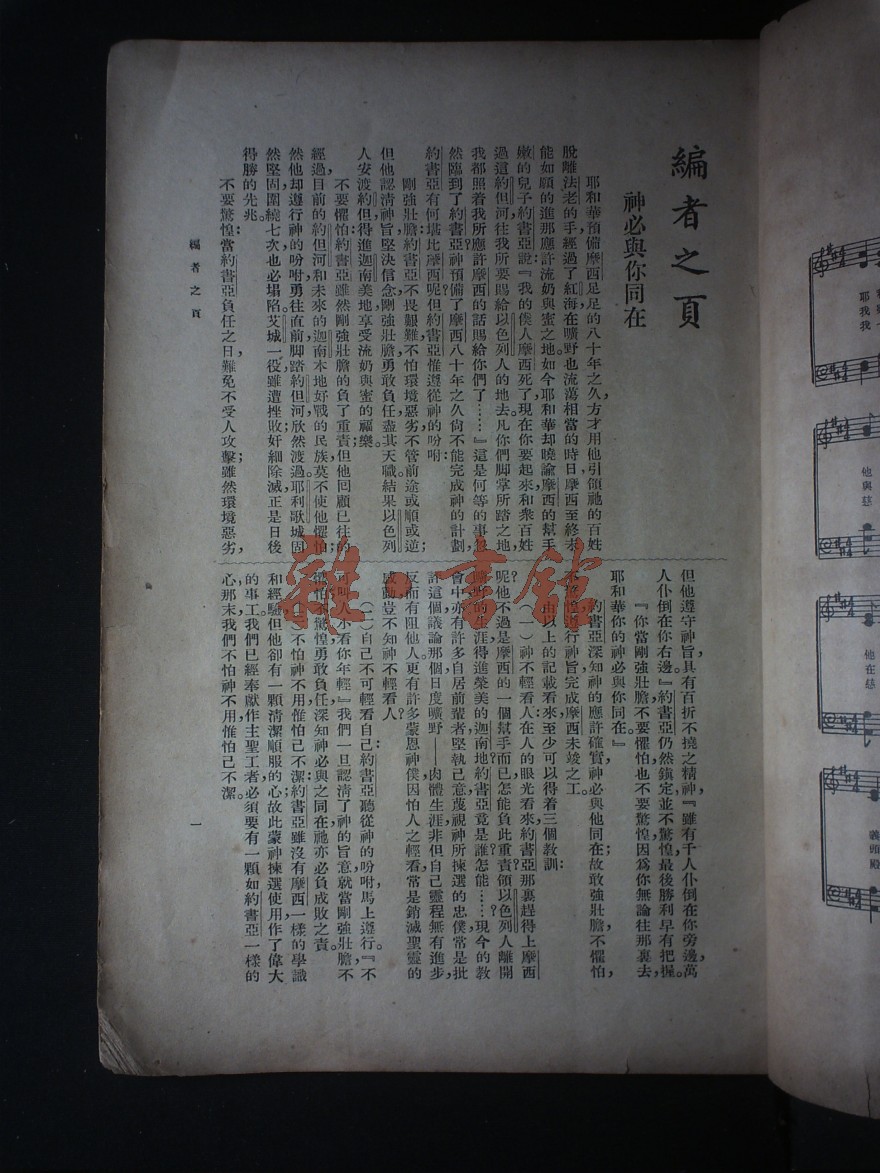 編者之頁
神必與你同在
耶和華預備摩西足足的八十年之久，方才用他引領祂的百姓
脫離法老的手，經過了紅海，在曠野也流蕩相當的時日，摩西至終未
能如願的進那應許流奶與蜜之地，如今耶和華却曉諭摩西的幫手，
嫩的兒子約書亞說：『我的僕人摩西死了，現在你要起來，和衆百姓
過這約但河，往我所要賜給以色列人的地去。凡你們脚掌所踏之地，
我都照着我所應許摩西的話賜給你們了……』這是何等的事，忽
然臨到了約書亞？神預備了摩西八十年之久尙不能完成神的計劃，
約書亞有何堪比摩西呢？但約書亞惟遵從神的吩咐：
剛強壯膽約書亞不畏艱難，不怕環境惡劣，不管前途或順或逆；
但他認淸神旨，堅決信念，剛強壯膽，勇敢負任，盡其天職。結果以色列
人安渡約但，得進迦南美地，享受流奶與蜜的福樂。
不要懼怕：約書亞雖然剛強壯膽的負了重責，但他回顧已往的
經過，目前的約但河和未來的迦南本地好戰的民族，莫不使他懼怕；
然他却遵行神的吩咐，勇往直前，脚踏約但河，欣然渡過。耶利歌城固
然堅固，圍繞七次也必塌陷，艾城一役，雖遭挫敗，奸細除滅，正是日後
得勝的先兆。
不要驚惶：當約書亞負任之日，難免不受人攻擊；雖然環境惡劣，
但他遵守神旨，具有百折不撓之精神，『雖有千人仆倒在你旁邊，萬
人仆倒在你右邊。』約書亞仍然鎭定，並不驚惶，最後勝利早有把握。
『你當剛強壯膽，不要懼怕，也不要驚惶，因爲你無論往那裏去，
耶和華你的神必與你同在。』
約書亞深知神的應許確實，神必與他同在；故敢剛強壯膽，不懼怕，
不驚惶，遵行神旨，完成摩西未竣之工。
由以上的記載看來，至少可以得着三個敎訓：
（一）神不輕看人：在人的眼光看來，約書亞那裏趕得上摩西
呢？他不過是摩西的一個幫手而已，怎能負此重責，領以色列人離開
曠野的生涯，得進榮美的迦南地？約書亞竟是誰？怎能……？現今的敎
會中亦有許多自居前輩者，堅執己意，蔑視神所揀選的忠僕，常是批
評這個，議論那個，日度曠野——肉體生涯，非但自己靈程無有進步，
反而有阻他人。更有許多蒙恩神僕，因怕人之輕看，常是銷滅聖靈的
感動，豈不知神不輕看人？
（二）自己不可輕看自己：約書亞聽從神的吩咐，馬上遵行。『不
可叫人小看你年輕』我們一旦認淸了神的旨意，就當剛強壯膽，不
懼怕，不驚惶，勇敢負任，深知神必與之同在，祂亦必負成敗之責。
（三）不怕神不用，惟怕己不潔：約書亞雖沒有摩西一樣的學識
和經驗，但他卻有一顆淸潔順服的心，故此蒙神揀選使用，作了偉大
的事工。我們已經奉獻作主聖工者，必須要有一顆如約書亞一樣的
心，那末，我們不怕神不用，惟怕己不潔。
編者之頁
一
雜·書館